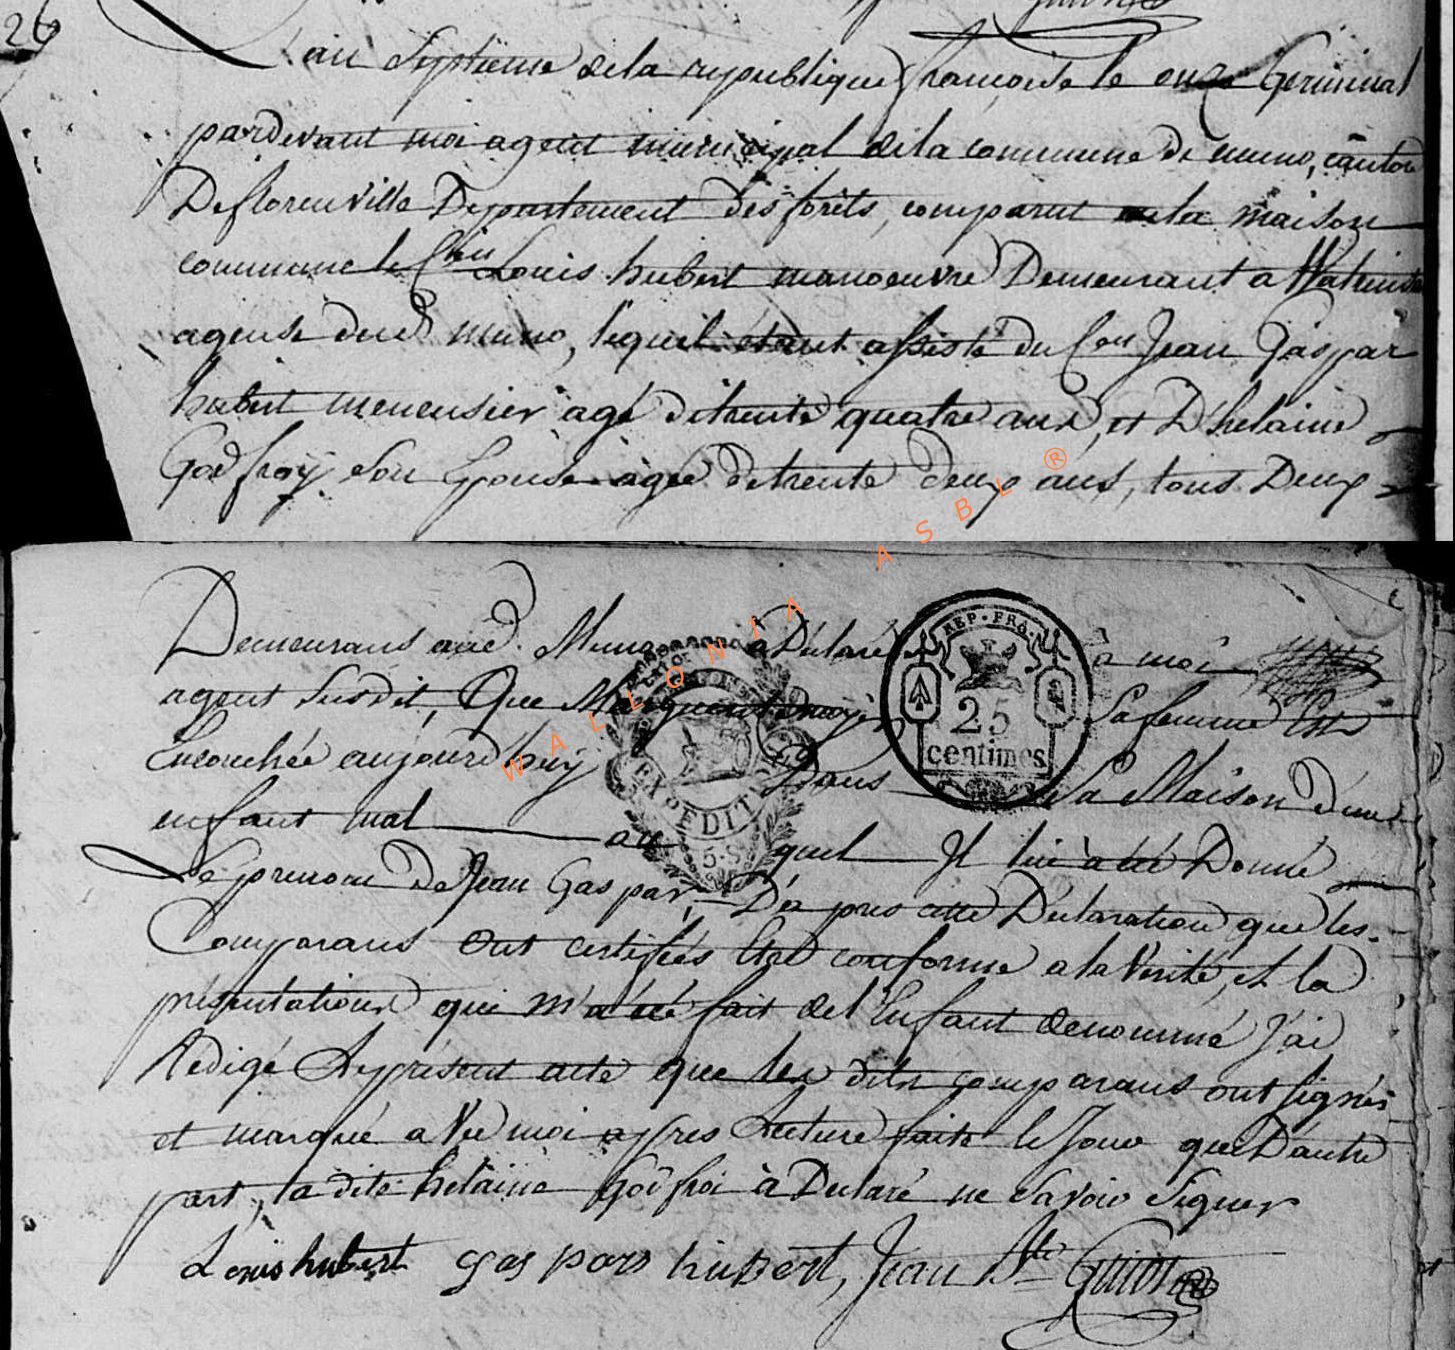 26
L'an Septieme dela republique francoise le onze Germinal
pardevant moi agent municipal dela commune de muno, canton
De florenville Departement des forêts, comparut en la maison
commune le Cien Louis hubert manoeuvre Demeurant a Watrinsa
agense dud muno, lequel étant assisté du Cen Jean Gaspar
hubert menensier agé detrente quatre ans, et D'helaine
Godfroy son Epouse agée detrente deux ans, tous Deux
Demeurans aud. Muno a Déclaré à moi
agent susdit, Que Marguerite Sa femme Est
Encouchée aujourd'huy Dans Sa Maison d'un
enfant mal au quel Il lui à été Donné
Le prenom De Jean Gaspar, D'a pres cette Déclaration que les
Comparans Ont certifiés Etre conforme a la Vérité, et la
présentation qui m'a été fait de l'Enfant denommé J'ai
Redigé Le présent acte que les dits comparans ont signés
et marqué a Vec moi apres Lecture faite le Jour que D'autre
part, la dite helaine Godfroi à Declaré ne Savoir Signer
Louis hubert gaspars hubert, Jean Bte Guiot
REP. FRA.
25
centimes
EXPEDIT
5.S
WALLONIA ASBL ®